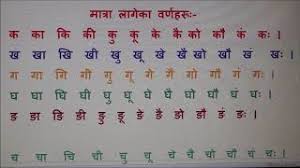 मात्रा लागेका वर्णहरूः-
क का कि की कु कू के कै को कौ कं कः ।
ख खा खि खी खु खू खे खै खो खौ खं खः ।
ग गा गि गी गु गू गे गै गो गौ गं गः ।
घ घा घि घी घु घू घे घै घो घौ घं घः ।
ङ ङा ङि ङी ङु ङू ङे ङै ङो ङौ ङं ङः ।
च चा चि ची चु चू चे चै चो चौ चं चः ।